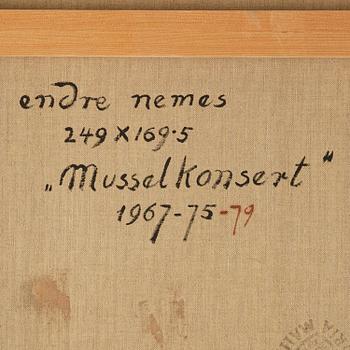 endre nemes
249 x 169.5
„Musselkonsert“
1967-75-79